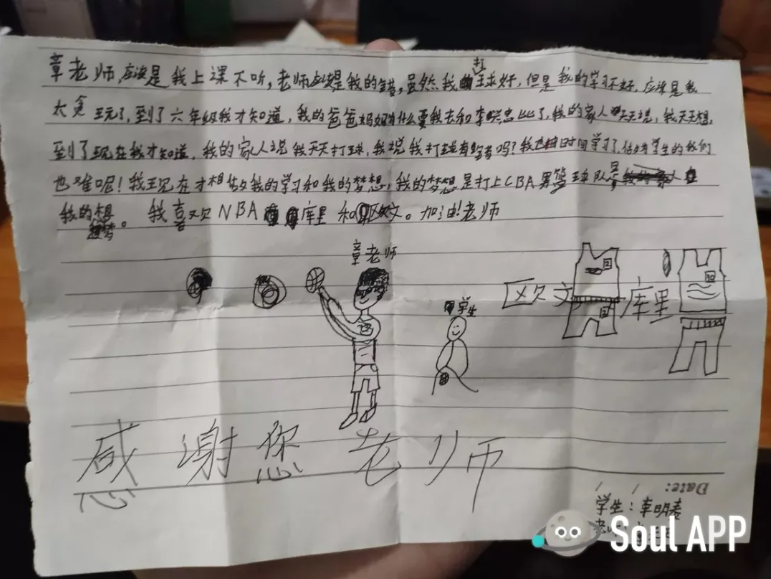 章老师,应该是我上课不听,老师应该是我的错,虽然我打球好,但是我的学习不好,应该是我
太贪玩了,到了六年级我才知道,我的爸爸妈妈为什么要我去和李比了,我的家人天天说,我天天想,
到了现在我才知道,我的家人说我天天打球,我说我打球有错吗?我也有时间学习,做学生的我们
也难呢!我现在才想好我的学习和我的梦想,我的梦想是打上CBA男篮球队是
我的想梦。我喜欢NBA库里和欧文。加油!老师
章老师
学生
欧文
库里
感谢您老师
Date: / /
学生:李明
Soul APP